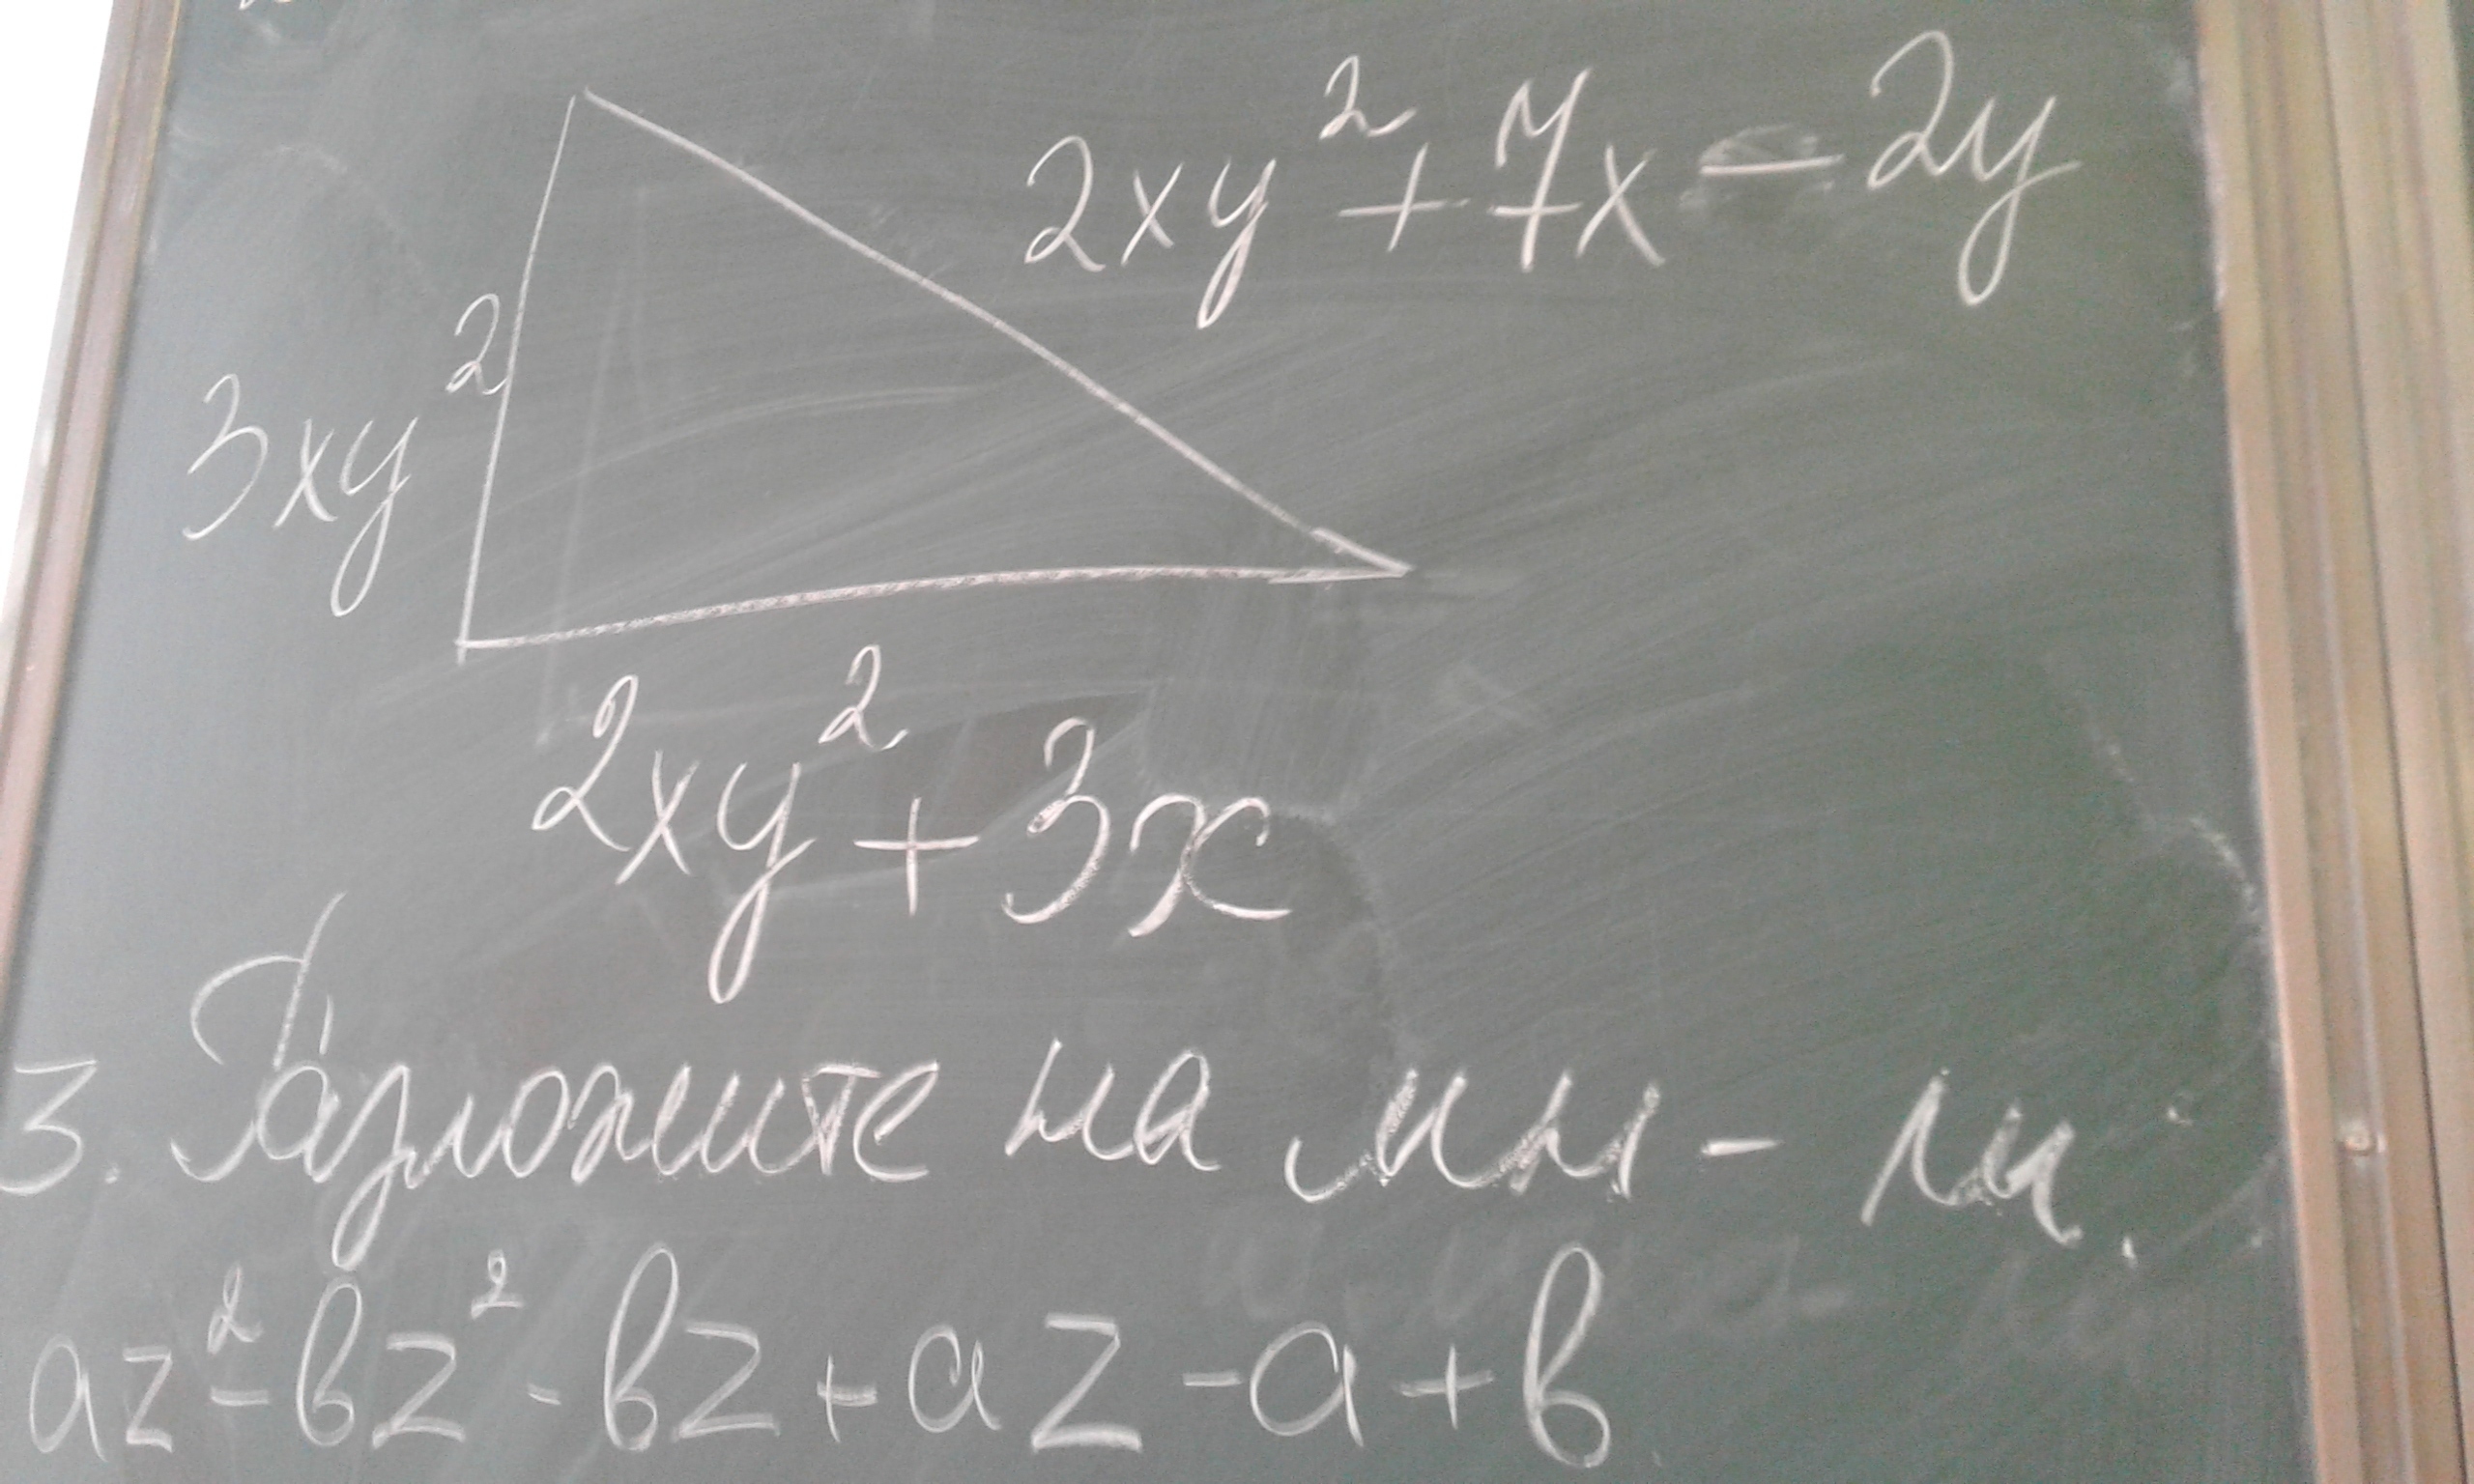 2xy² + 7x - 2y
3xy²
2xy² + 3x
3. Разложите на мн-ли.
az² - bz² - bz + az - a + b